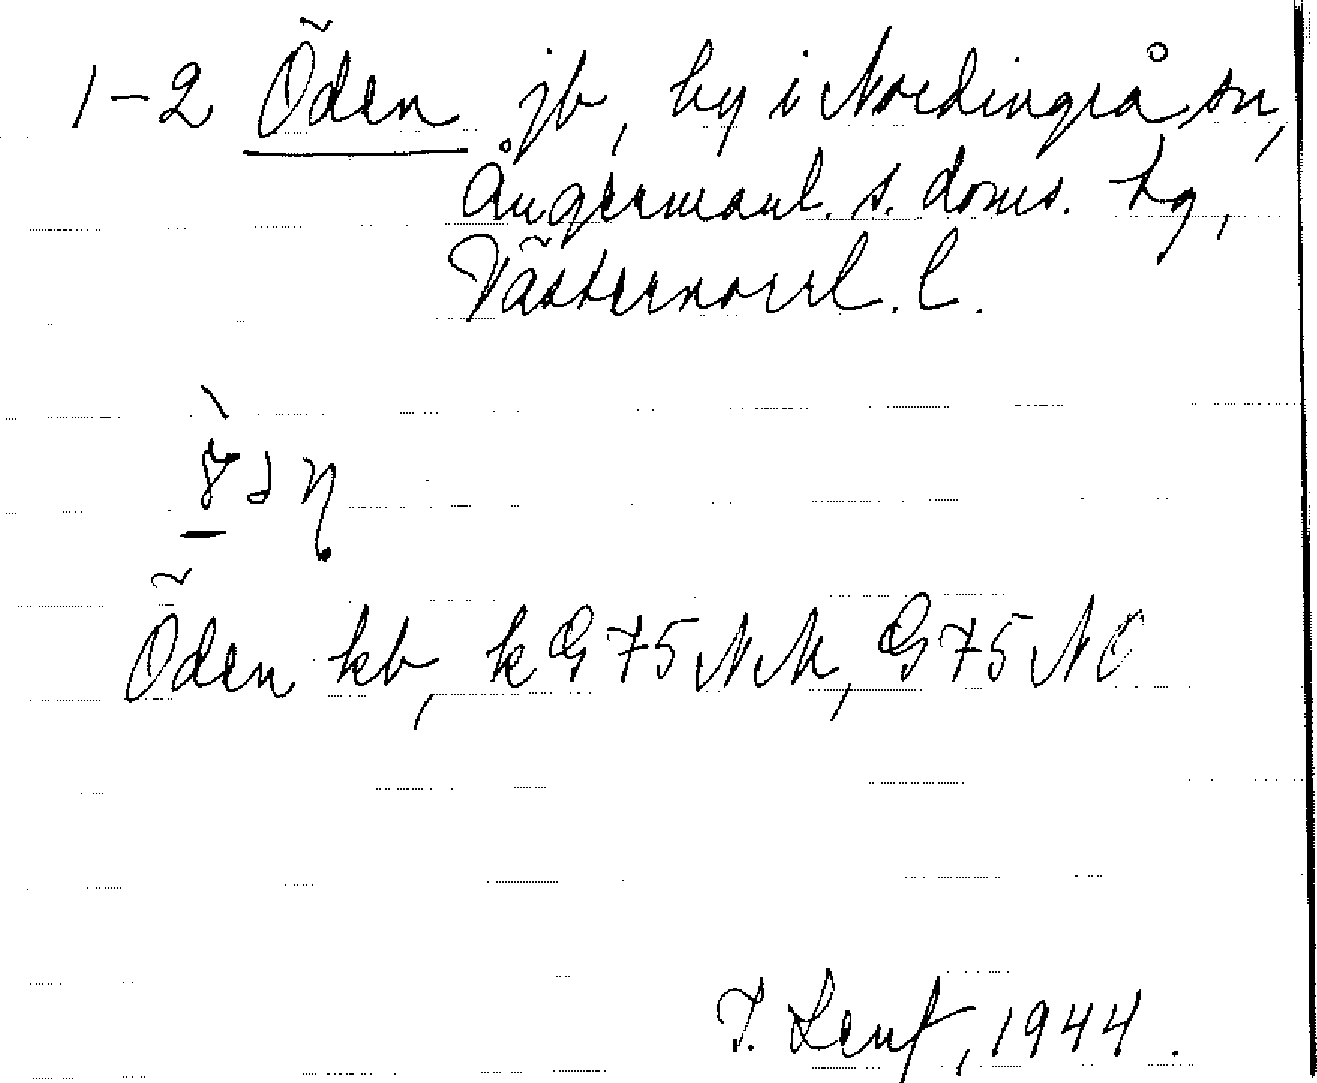 1-2 Öden jb, by i Nordingrå sn,
Ångermanl. s. doms. tg,
Västernorrl. l.
Öden kb, k G 75 NM, G 75 NO
T. Lenf, 1944.